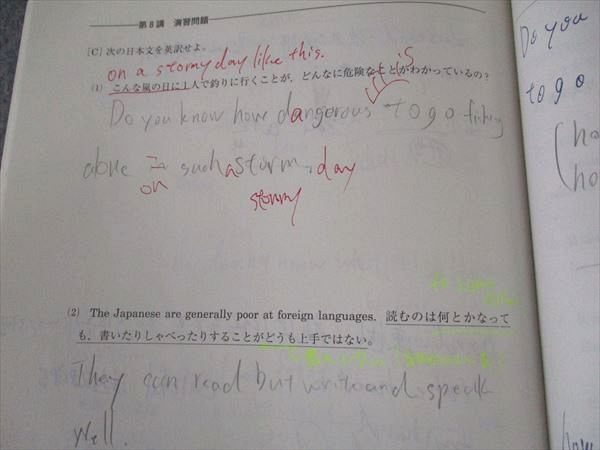 第8講 演習問題
[C] 次の日本文を英訳せよ。
on a stormy day like this.
(1) こんな嵐の日に1人で釣りに行くことが、どんなに危険なことかわかっているの?
is
Do you know how dangerous to go fishing
alone in such a storm, day
on
stormy
(2) The Japanese are generally poor at foreign languages. 読むのは何とかなって
も、書いたりしゃべったりすることがどうも上手ではない。
They can read but write and speak
well.
Do you
to go
how